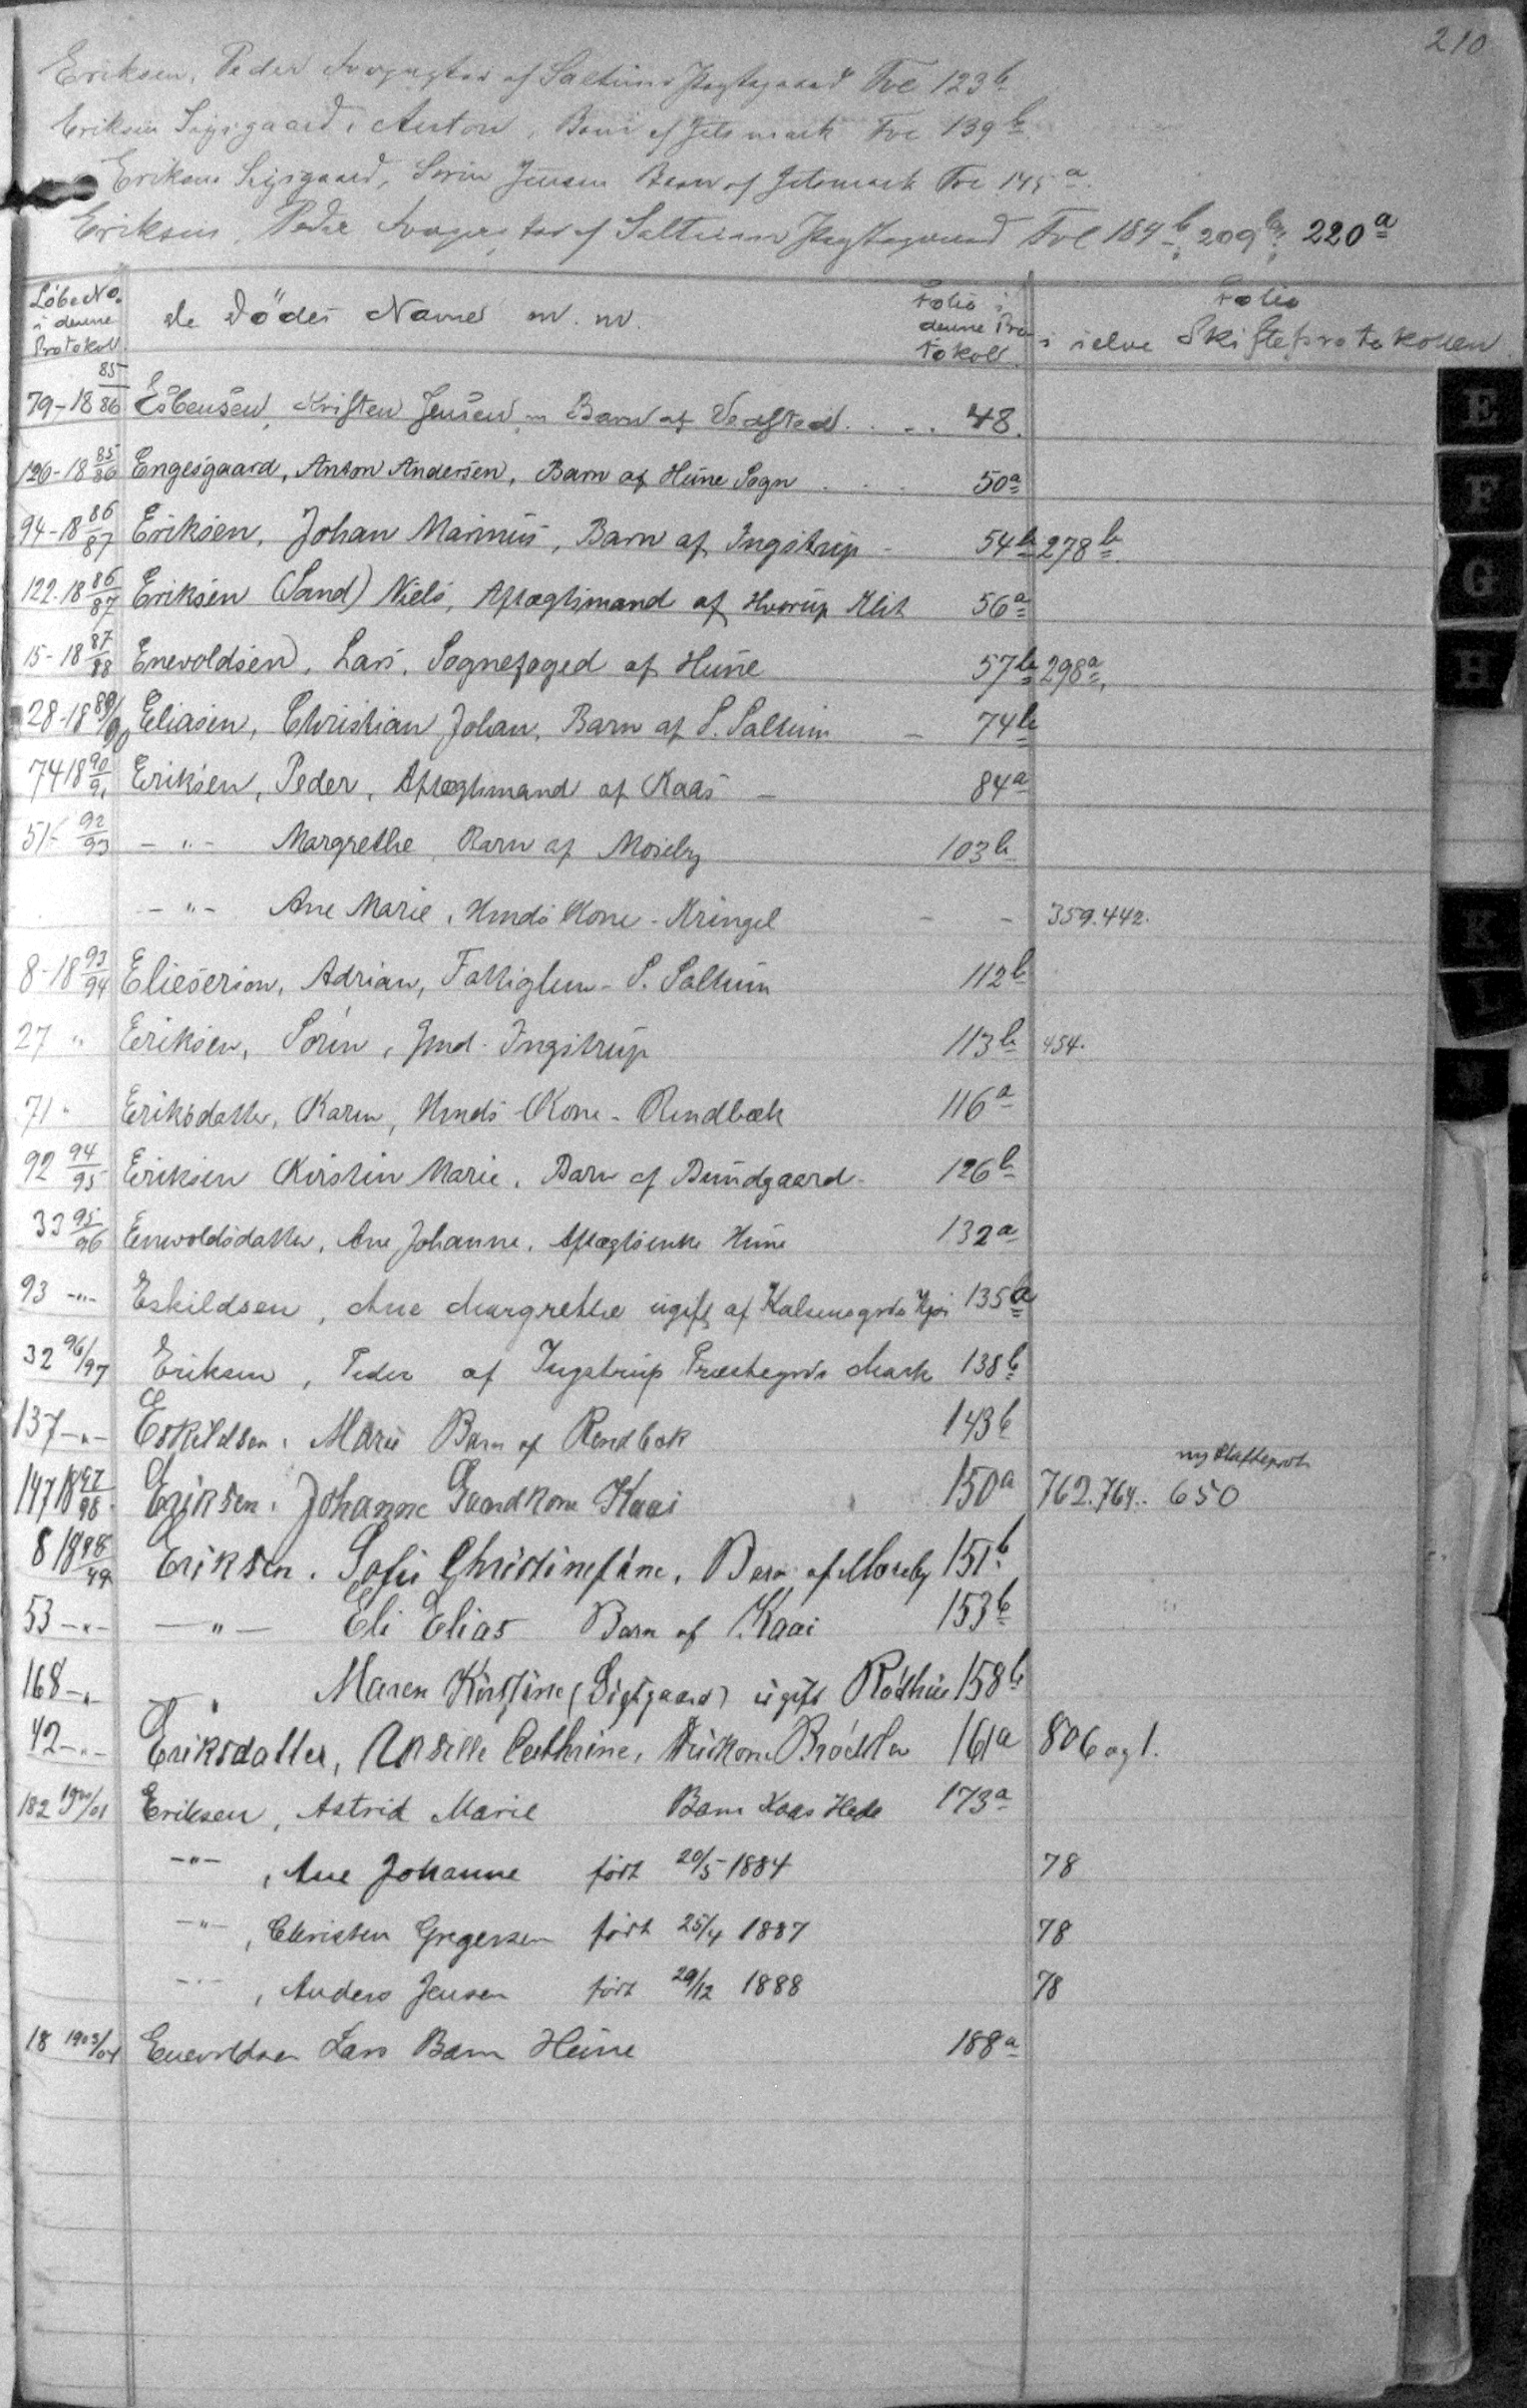 210
Eriksen, Peder af Saltum Fol 123 b
Eriksen Sigsgaard, Anton, Barn af Jetsmark Fol 139 b
Eriksen Sigsgaard, Sørin Jensen Barn af Jetsmark Fol 145 a
Eriksen, Peder af Saltum Fol 184 b, 209 b, 220 a
Løbe No. i denne Protokol. de Dödes Navne m. m. Folio i denne Protokol. Folio i selve Skifteprotokollen
79-18 85/86 Esbensen, Kristen Jensen Barn af Vedsted. . . . 48.
126-18 85/86 Engesgaard, Anton Andersen, Barn af Hune Sogn . . . 50 a
94-18 86/87 Eriksen, Johan Marinus, Barn af Ingstrup - 54 b 278 b
122-18 86/87 Eriksen (Sand) Niels, Aftægtsmand af Hvorup Klit 56 a
15-18 87/88 Enevoldsen, Lars, Sognefoged af Hune 57 b 298 a,
28-18 89/90 Eliasen, Christian Johan, Barn af S. Saltum - 74 b
74 18 90/91 Eriksen, Peder, Aftægtsmand af Kaas - 84 a
51- 92/93 - " - Margrethe, Barn af Moseby 103 b
- " - Ane Marie, Hmds Kone - Kringel - - 359.442.
8-18 93/94 Elieserson, Adrian, Fattiglem - S. Saltum 112 b
27 " Eriksen, Sørin, Gmd - Ingstrup 113 b 454.
71 " Eriksdatter, Karen, Hmds Kone - Rendbæk 116 a
92 94/95 Eriksen Kirstin Marie, Barn af Bundgaard - 126 b
33 95/96 Enevoldsdatter, Ane Johanne, Aftægtsenke Hune 132 a
93 -"- Eskildsen, Ane Margrethe ugift af 135 a
32 96/97 Eriksen, Peder af Ingstrup Præstegrds Mark 138 b
137 -"- Eskildsen, Marie Barn af Rendbæk 143 b
147 18 97/98 Eriksen, Johanne Gaardkone Kaas 150 a 762.764. 650
8 18 98/99 Eriksen, Sofie Christinefine, Barn af Moseby 151 b
53 -"- -"- Eli Elias Barn af Kaas 153 b
168 -"- -"- Maren Kirstine (Sigsgaard) ugift Rödhus 158 b
42 -"- Eriksdatter, Cathrine, 161 a 806 og 1.
182 1900/01 Eriksen, Astrid Marie Barn Kaas Hede 173 a
-"- , Ane Johanne født 20/5 1884 78
-"- , Christen Gregersen født 25/4 1887 78
-"- , Anders Jensen født 29/12 1888 78
18 1903/04 Enevoldsen Lars Barn Hune 188 a
E
F
G
H
K
L